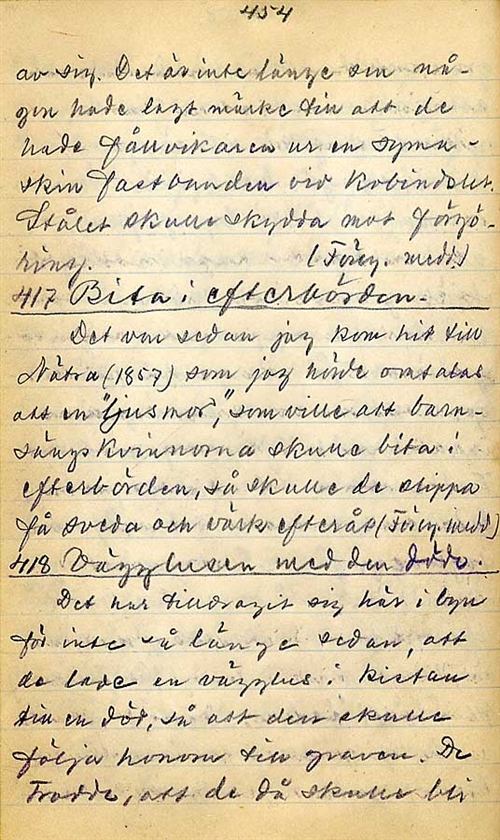 454
av sig. Det är inte länge sen nå-
gon hade lagt märke till att de
hade fållvikaren ur en syma-
skin fastbunden vid kobindslet.
Stålet skulle skydda mot förgö-
ring. (Föreg. medd.)
417 Bita i efterbörden.
Det var sedan jag kom hit till
Nätra (1857) som jag hörde omtalas
att en "ljusmor", som ville att barn-
sängskvinnorna skulle bita i
efterbörden, så skulle de slippa
få sveda och värk efteråt (Föreg. medd)
418 Vägglusen med den döde.
Det har tilldragit sig här i byn
för inte så länge sedan, att
de lade en vägglus i kistan
till en död, så att den skulle
följa honom till graven. De
trodde, att de då skulle bli